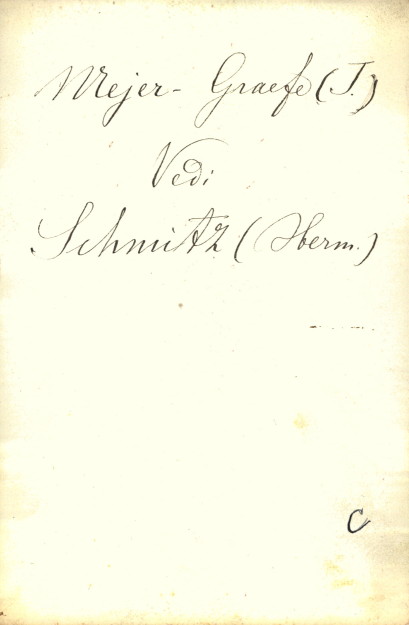 Mejer-Graefe (J.)
Vedi
Schmitz (Herm.)
C